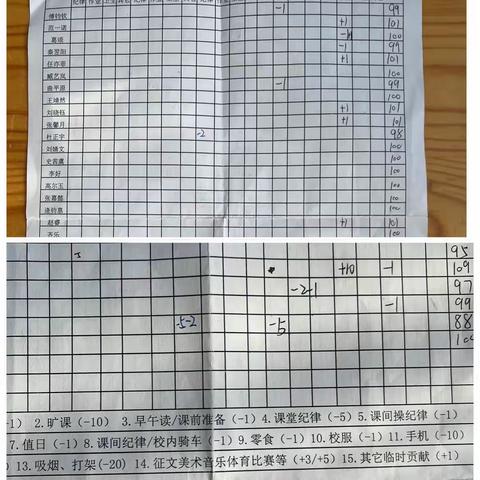 纪律 作业 卫生 其它 纪律 作业
-1 99
傅钧钦 +1 101
范一诺 100
葛项 -1 99
秦翌阳 +1 101
任亦菲
臧艺岚 100
曲平原 -1 99
王靖然 100
刘晓钰 +1 101
张馨月 +1 101
杜正宇 -2 98
刘婧文 100
史若虞 100
李好 100
高尔玉 100
张嘉懿 100
逄钧惠 100
赵睿 +1 101
齐乐 100
95
+10 -1 109
-2-1 97
-1 99
-5-2 -5 88
-1） 2.旷课（-10） 3.早午读/课前准备（-1）4.课堂纪律（-5）5.课间操纪律（-1）
7.值日（-1）8.课间纪律/校内骑车（-1）9.零食（-1）10.校服（-1）11.手机（-10）
）13.吸烟、打架(-20）14.征文美术音乐体育比赛等（+3/+5）15.其它临时贡献（+1）